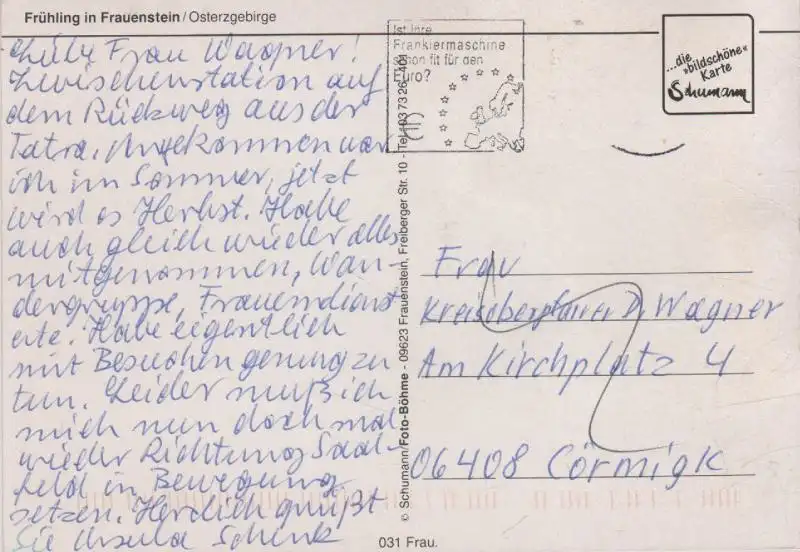 Frühling in Frauenstein / Osterzgebirge
Liebe Frau Wagner!
Zwischenstation auf
dem Rückweg aus der
Tatra. Angekommen war
ich im Sommer, jetzt
wird es Herbst. Habe
auch gleich wieder alles
mitgenommen, Wan-
dergruppe, Frauendienst
etc. Habe eigentlich
mit Besuchen genung zu
tun. Leider muß ich
mich nun doch mal
wieder Richtung Saal-
feld in Bewegung
setzen. Herzlich grüßt
Sie Ursula Schenk
Ist Ihre
Frankiermaschine
schon fit für den
Euro?
...die
»bildschöne«
Karte
Schumann
© Schumann/Foto-Böhme - 09623 Frauenstein, Freiberger Str. 10 - Tel. 037326/1401
Frau
Kreisoberpfarrer D. Wagner
Am Kirchplatz 4
06408 Cörmigk
031 Frau.